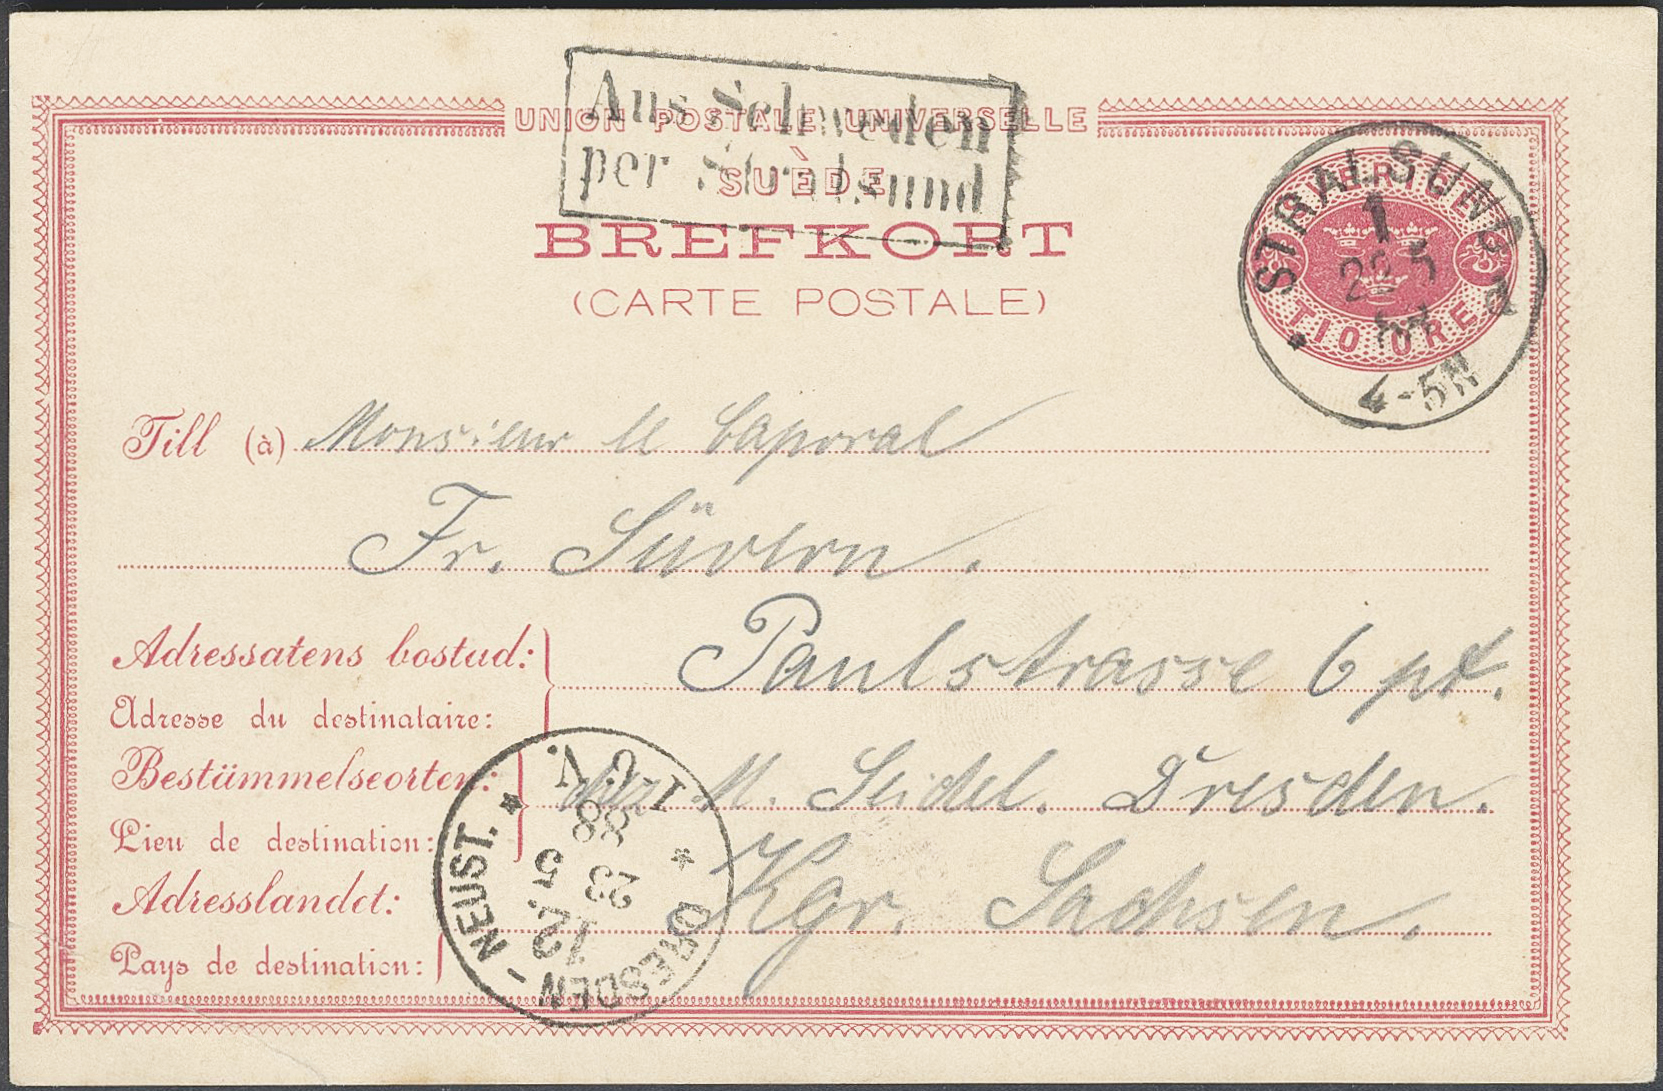 Aus Schweden
per Stralsund
UNION POSTALE UNIVERSELLE
SUÈDE
BREFKORT
(CARTE POSTALE)
SVERIGE
TIO ÖRE
STRALSUND
1
22 5
4-5N
Till (à) Monsieur le Caporal
Fr. Süvern.
Adressatens bostad: Paulstrasse 6 pt.
Adresse du destinataire:
Bestämmelseorten: M. Seidel. Dresden.
Lieu de destination:
Adresslandet: Kgr. Sachsen.
Pays de destination:
DRESDEN - NEUST.
12. 5
23
88